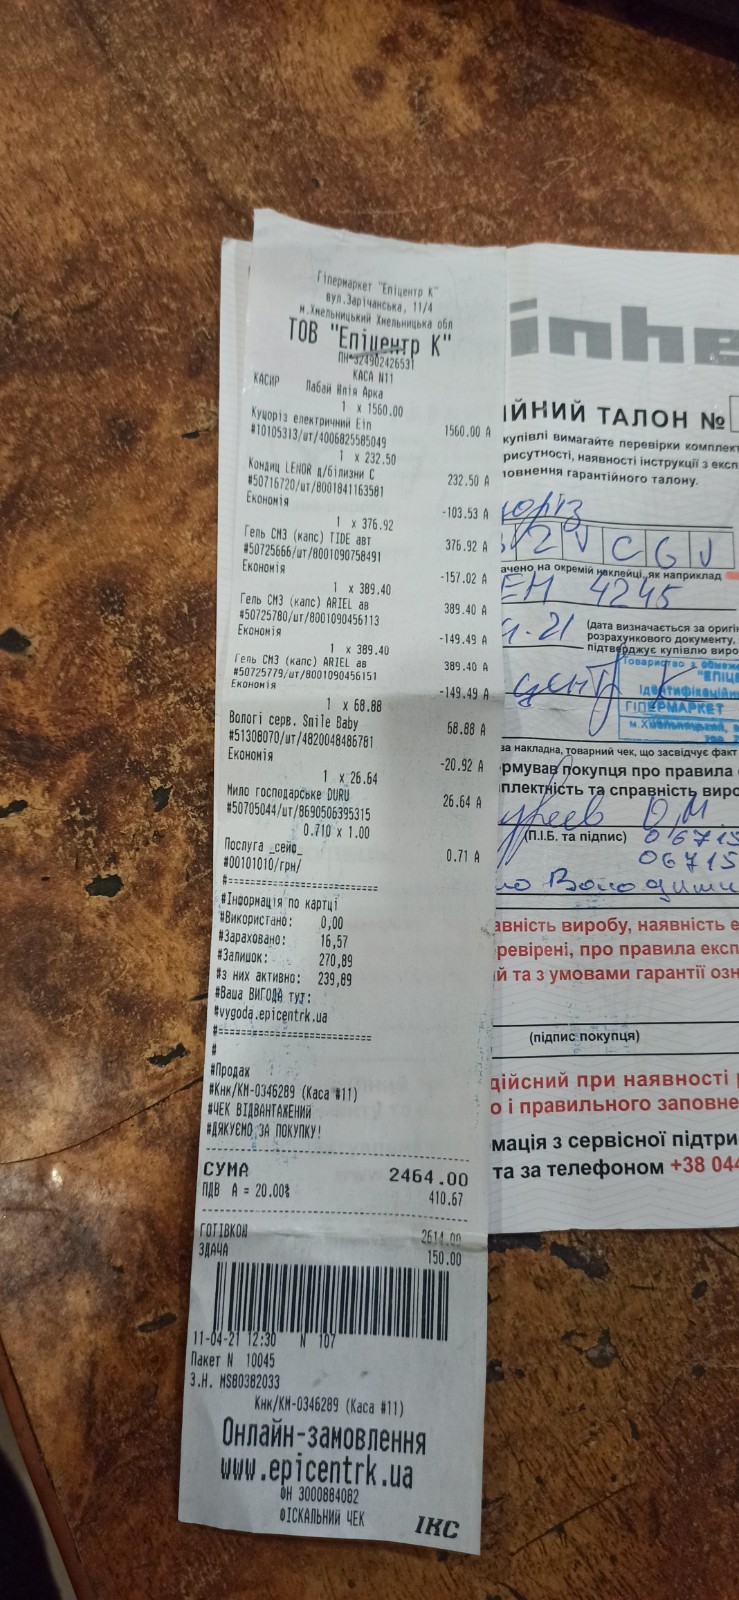 Гіпермаркет "Епіцентр К"
вул.Зарічанська, 11/4
м.Хмельницький Хмельницька обл
ТОВ "Епіцентр К"
ПН 324902426531
КАСА N11
КАСИР Лабай Юлія Арка
1 x 1560.00
Кущоріз електричний Ein
#10105313/шт/4006825585049 1560.00 А
1 x 232.50
Кондиц LENOR д/білизни С
#50716720/шт/8001841163581 232.50 А
Економія -103.53 А
1 x 376.92
Гель СМЗ (капс) TIDE авт
#50725666/шт/8001090758491 376.92 А
Економія -157.02 А
1 x 389.40
Гель СМЗ (капс) ARIEL ав
#50725780/шт/8001090456113 389.40 А
Економія -149.49 А
1 x 389.40
Гель СМЗ (капс) ARIEL ав
#50725779/шт/8001090456151 389.40 А
Економія -149.49 А
1 x 68.88
Вологі серв. Smile Baby
#51308070/шт/4820048486781 68.88 А
Економія -20.92 А
1 x 26.64
Мило господарське DURU
#50705044/шт/8690506395315 26.64 А
0.710 x 1.00
Послуга _сейф_
#00101010/грн/ 0.71 А
#=======================
#Інформація по картці
#Використано: 0,00
#Зараховано: 16,57
#Залишок: 270,89
#з них активно: 239,89
#Ваша ВИГОДА тут:
#vygoda.epicentrk.ua
#=======================
#
#Продаж
#Кнк/КМ-0346289 (Каса #11)
#ЧЕК ВІДВАНТАЖЕНИЙ
#ДЯКУЄМО ЗА ПОКУПКУ!
СУМА 2464.00
ПДВ А = 20.00% 410.67
ГОТІВКОЮ 2614.00
ЗДАЧА 150.00
11-04-21 12:30 N 107
Пакет N 10045
З.Н. MS80382033
Кнк/КМ-0346289 (Каса #11)
Онлайн-замовлення
www.epicentrk.ua
ФН 3000884082
ФІСКАЛЬНИЙ ЧЕК
ІКС
inhe
ІЙНИЙ ТАЛОН №
купівлі вимагайте перевірки комплект
рисутності, наявності інструкції з експ
повнення гарантійного талону.
2 V C G J
ачено на окремій наклейці, як наприклад
ЕН 4245
21 (дата визначається за оригін
розрахункового документу,
підтверджує купівлю виро
Товариство з обмеже
"ЕПІЦЕ
Ідентифікаційний
ГІПЕРМАРКЕТ
м.Хмельницький,
центр К
за накладна, товарний чек, що засвідчує факт
рмував покупця про правила
плектність та справність виро
О.М.
(П.І.Б. та підпис) 06715
06715
Володими
авність виробу, наявність е
ревірені, про правила експ
й та з умовами гарантії озн
(підпис покупця)
дійсний при наявності
о і правильного заповне
мація з сервісної підтри
та за телефоном +38 044